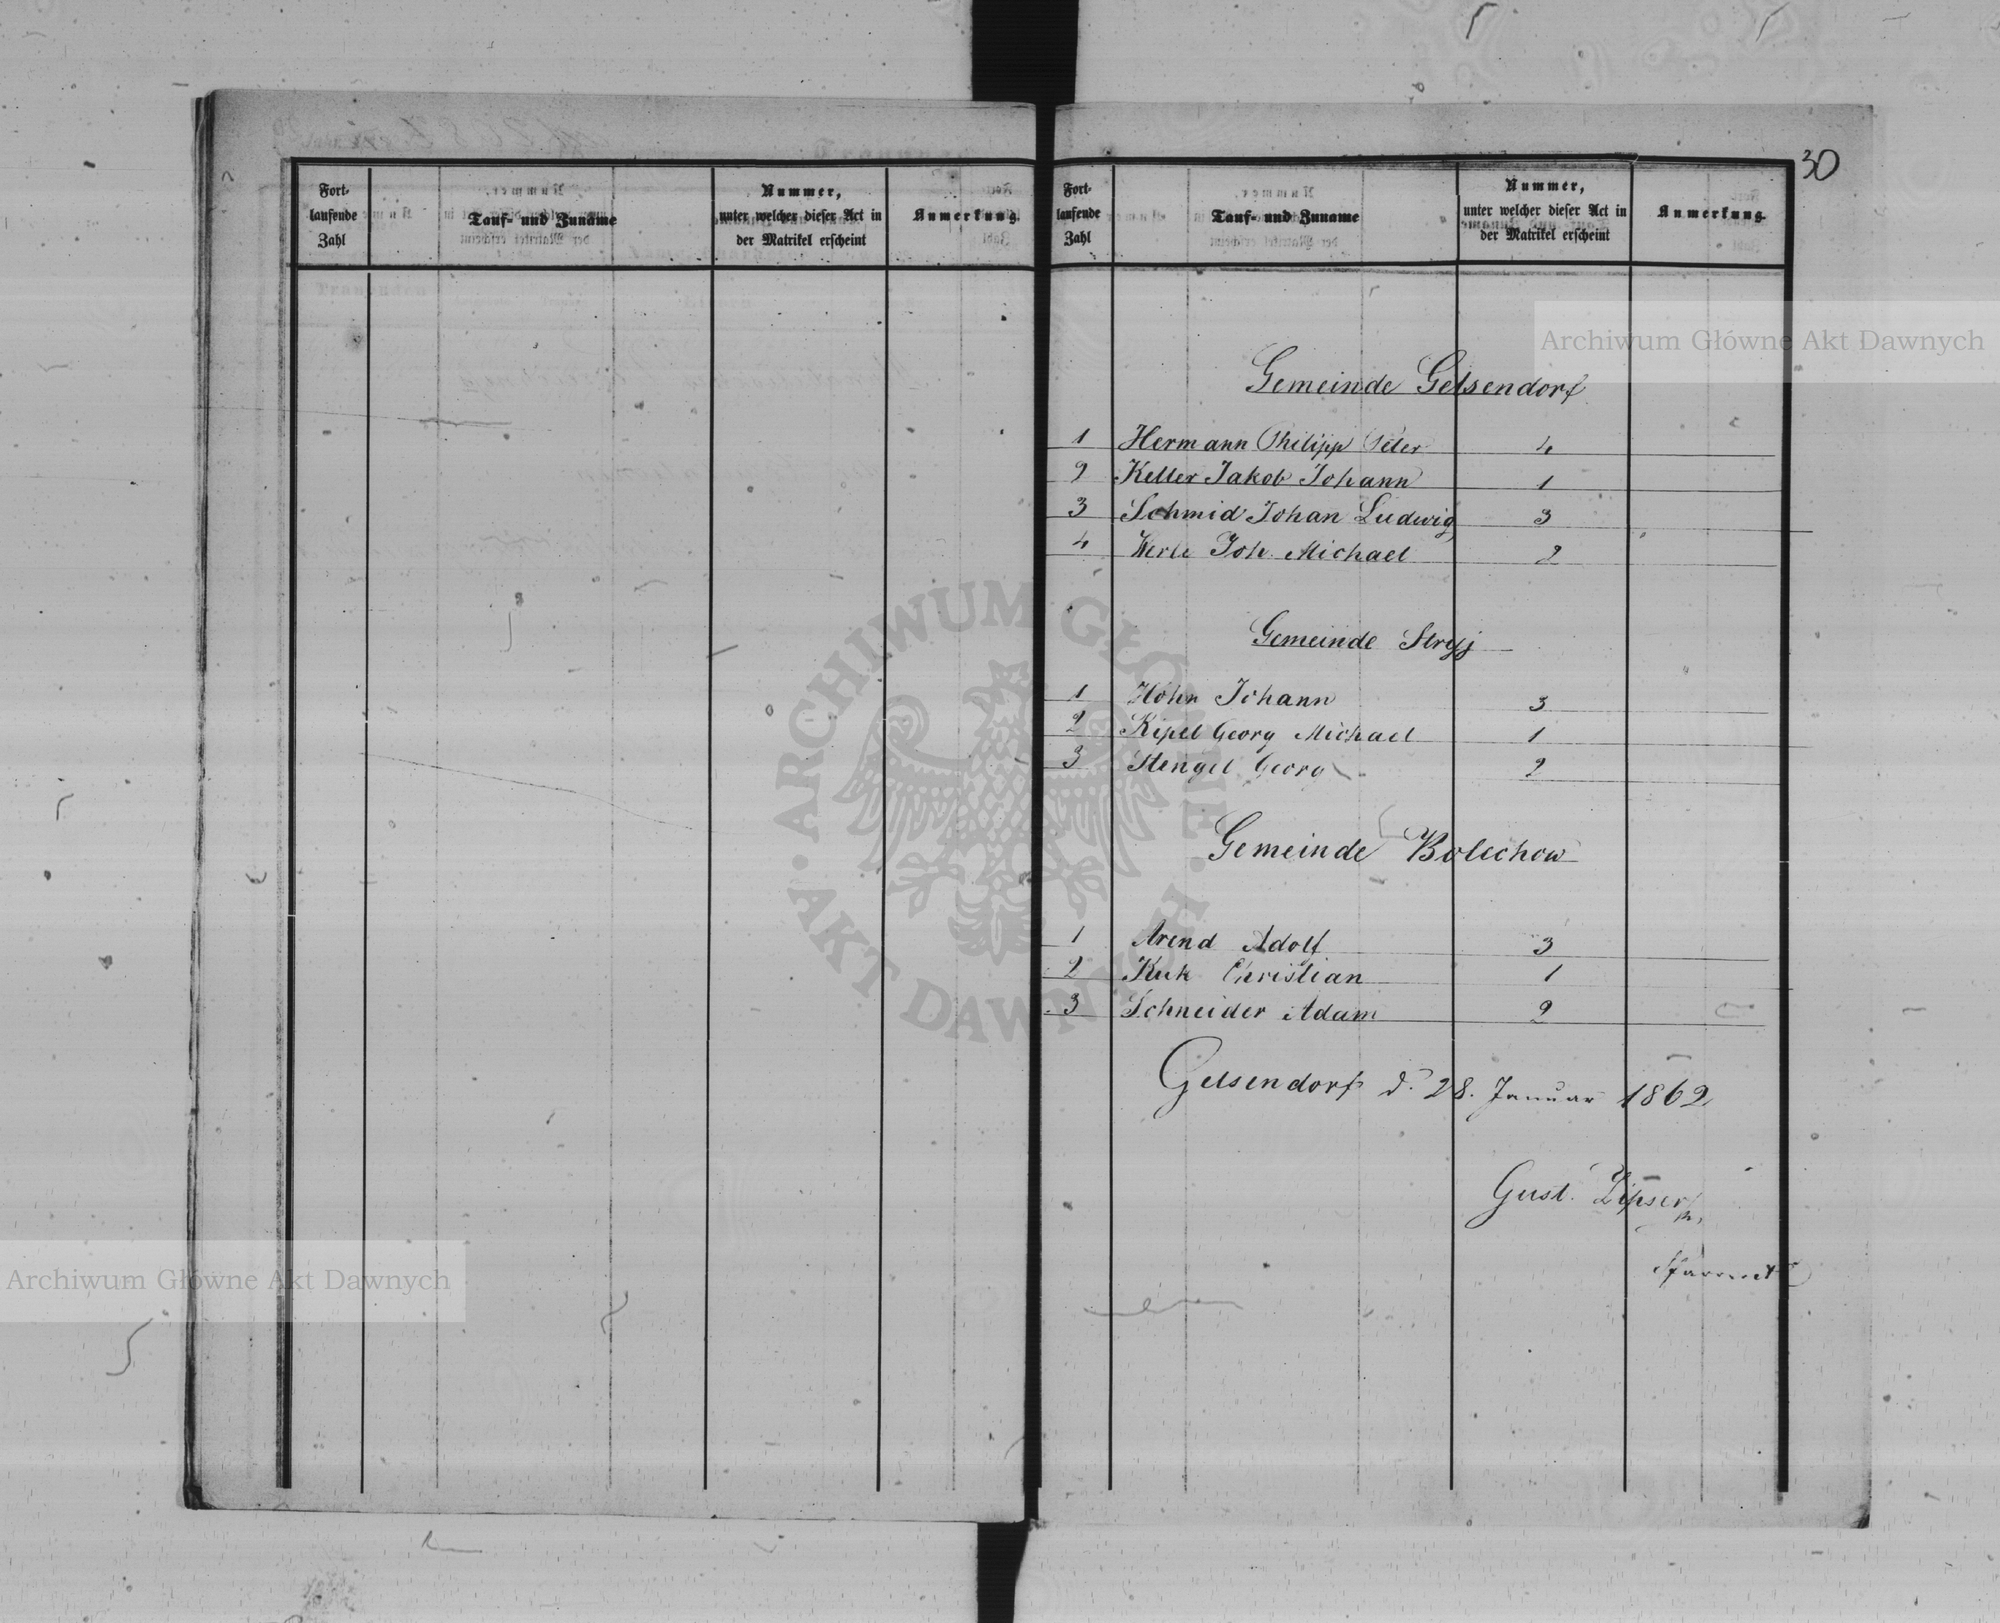 30
Fort-
laufende
Zahl
Tauf- und Zuname
Nummer,
unter welcher dieser Act in
der Matrikel erscheint
Anmerkung.
Fort-
laufende
Zahl
Tauf- und Zuname
Nummer,
unter welcher dieser Act in
der Matrikel erscheint
Anmerkung.
Gemeinde Gelsendorf
1 Hermann Philipp Peter 4
2 Keller Jakob Johann 1
3 Schmid Johan Ludwig 3
4 Werle Joh. Michael 2
Gemeinde Stryj
1 Hohn Johann 3
2 Kipel Georg Michael 1
3 Stengel Georg 2
Gemeinde Bolechow
1 Arend Adolf 3
2 Kuk Christian 1
3 Schneider Adam 2
Gelsendorf d. 28. Januar 1862
Gust. Zipser
Archiwum Główne Akt Dawnych
Archiwum Główne Akt Dawnych
ARCHIWUM GŁÓWNE AKT DAWNYCH